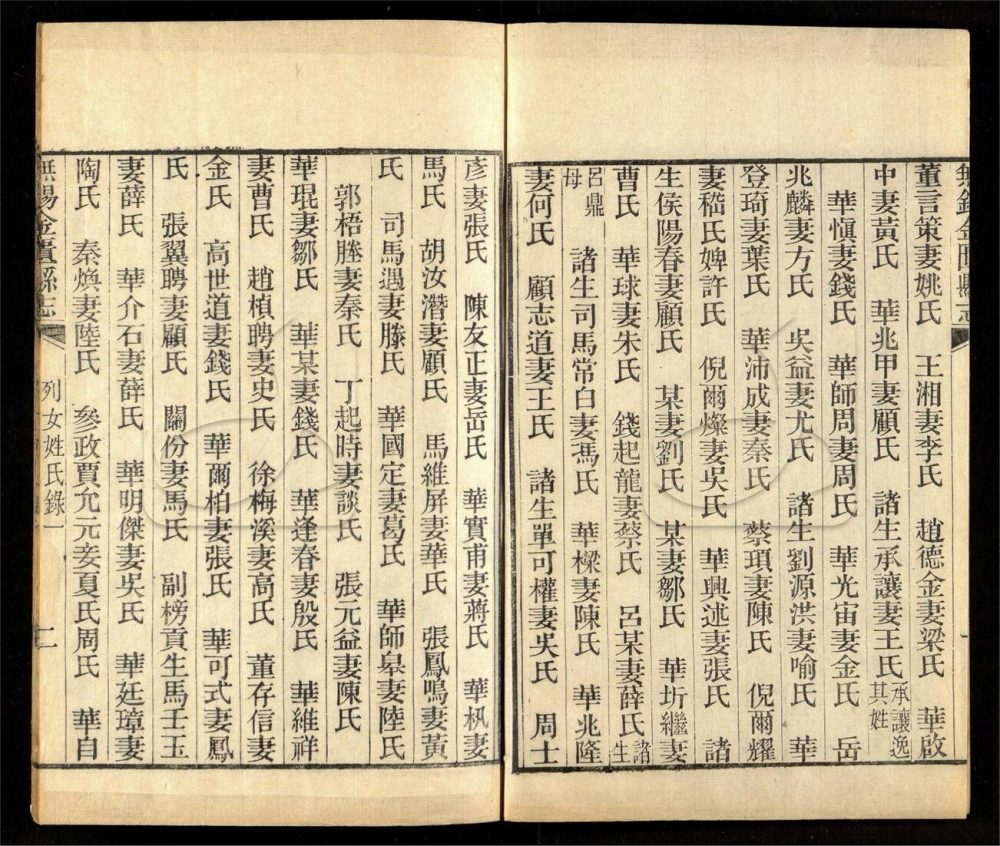 無錫金匱縣志
董言策妻姚氏　王湘妻李氏　趙德金妻梁氏　華啟
中妻黃氏　華兆甲妻顧氏　諸生承讓妻王氏承讓逸其姓
華愼妻錢氏　華師周妻周氏　華光宙妻金氏　岳
兆麟妻方氏　吳益妻尤氏　諸生劉源洪妻喻氏　華
登琦妻葉氏　華沛成妻秦氏　蔡頊妻陳氏　倪爾耀
妻嵇氏婢許氏　倪爾燦妻吳氏　華興述妻張氏　諸
生侯陽春妻顧氏　某妻劉氏　某妻鄒氏　華圻繼妻
曹氏　華球妻朱氏　錢起龍妻蔡氏　呂某妻薛氏諸生
呂鼎母　諸生司馬常白妻馮氏　華樑妻陳氏　華兆隆
妻何氏　顧志道妻王氏　諸生單可權妻吳氏　周士
彥妻張氏　陳友正妻岳氏　華實甫妻蔣氏　華枫妻
馬氏　胡汝潛妻顧氏　馬維屏妻華氏　張鳳鳴妻黃
氏　司馬遇妻滕氏　華國定妻葛氏　華師皋妻陸氏
郭梧塍妻秦氏　丁起時妻談氏　張元益妻陳氏
華琨妻鄒氏　華某妻錢氏　華逢春妻殷氏　華維祥
妻曹氏　趙楨聘妻史氏　徐梅溪妻高氏　董存信妻
金氏　高世道妻錢氏　華爾柏妻張氏　華可式妻鳳
氏　張翼聘妻顧氏　闞份妻馬氏　副榜貢生馬壬玉
妻薛氏　華介石妻薛氏　華明傑妻吳氏　華廷璋妻
陶氏　秦煥妻陸氏　參政賈允元妾夏氏周氏　華自
無錫金匱縣志　列女姓氏錄一　二